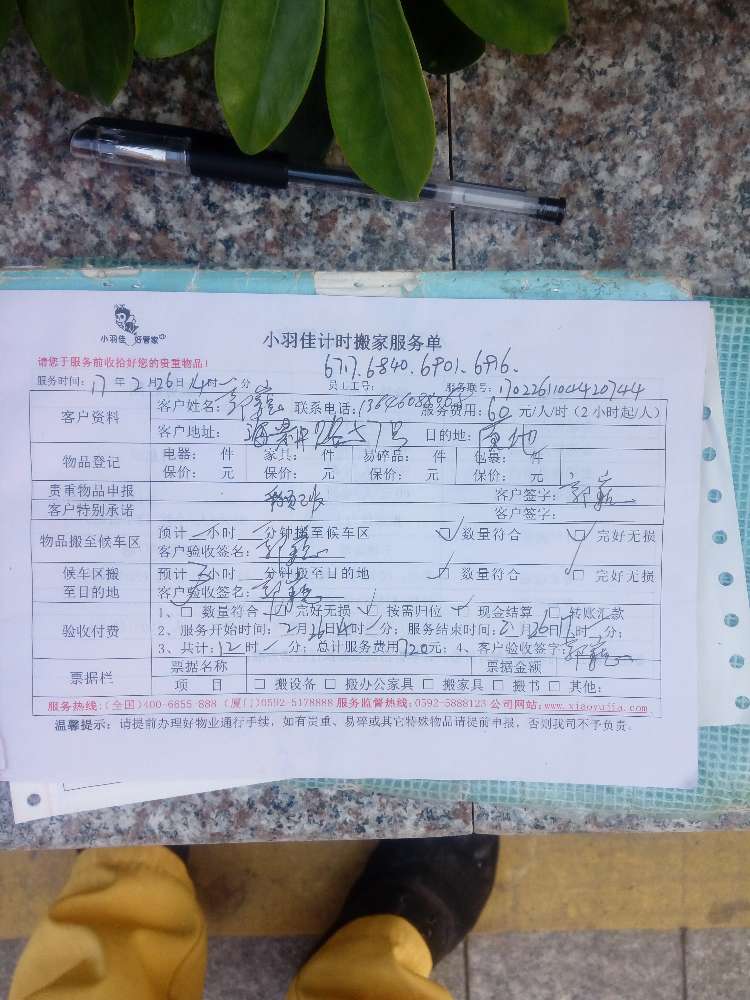 小羽佳 好管家
小羽佳计时搬家服务单
请您于服务前收拾好您的贵重物品！
6717.6840.6901.6916.
服务时间：17年2月26日14时 分 员工工号： 服务联号：17022611044207 44
客户资料
客户姓名： 联系电话： 服务费用：60元/人/时（2小时起/人）
客户地址： 57号 目的地：
物品登记
电器： 件 家具： 件 易碎品： 件 包裹： 件
保价： 元 保价： 元 保价： 元 保价： 元
贵重物品申报 客户签字：
客户特别承诺 客户签字：
物品搬至候车区
预计 小时 分钟搬至候车区 数量符合 完好无损
客户验收签名：
候车区搬至目的地
预计 小时 分钟搬至目的地 数量符合 完好无损
客户验收签名：
验收付费
1、 数量符合 完好无损 按需归位 现金结算 转账汇款
2、服务开始时间：2月26日14时 分；服务结束时间：2月26日17时 分；
3、共计：12时 分；总计服务费用720元；4、客户验收签字：
票据栏
票据名称 票据金额
项 目 搬设备 搬办公家具 搬家具 搬书 其他：
服务热线：(全国)400-6655-888 (厦门)0592-5178888 服务监督热线：0592-5888123 公司网站：www.xiaoyujia.com
温馨提示：请提前办理好物业通行手续，如有贵重、易碎或其它特殊物品请提前申报，否则我司不予负责。